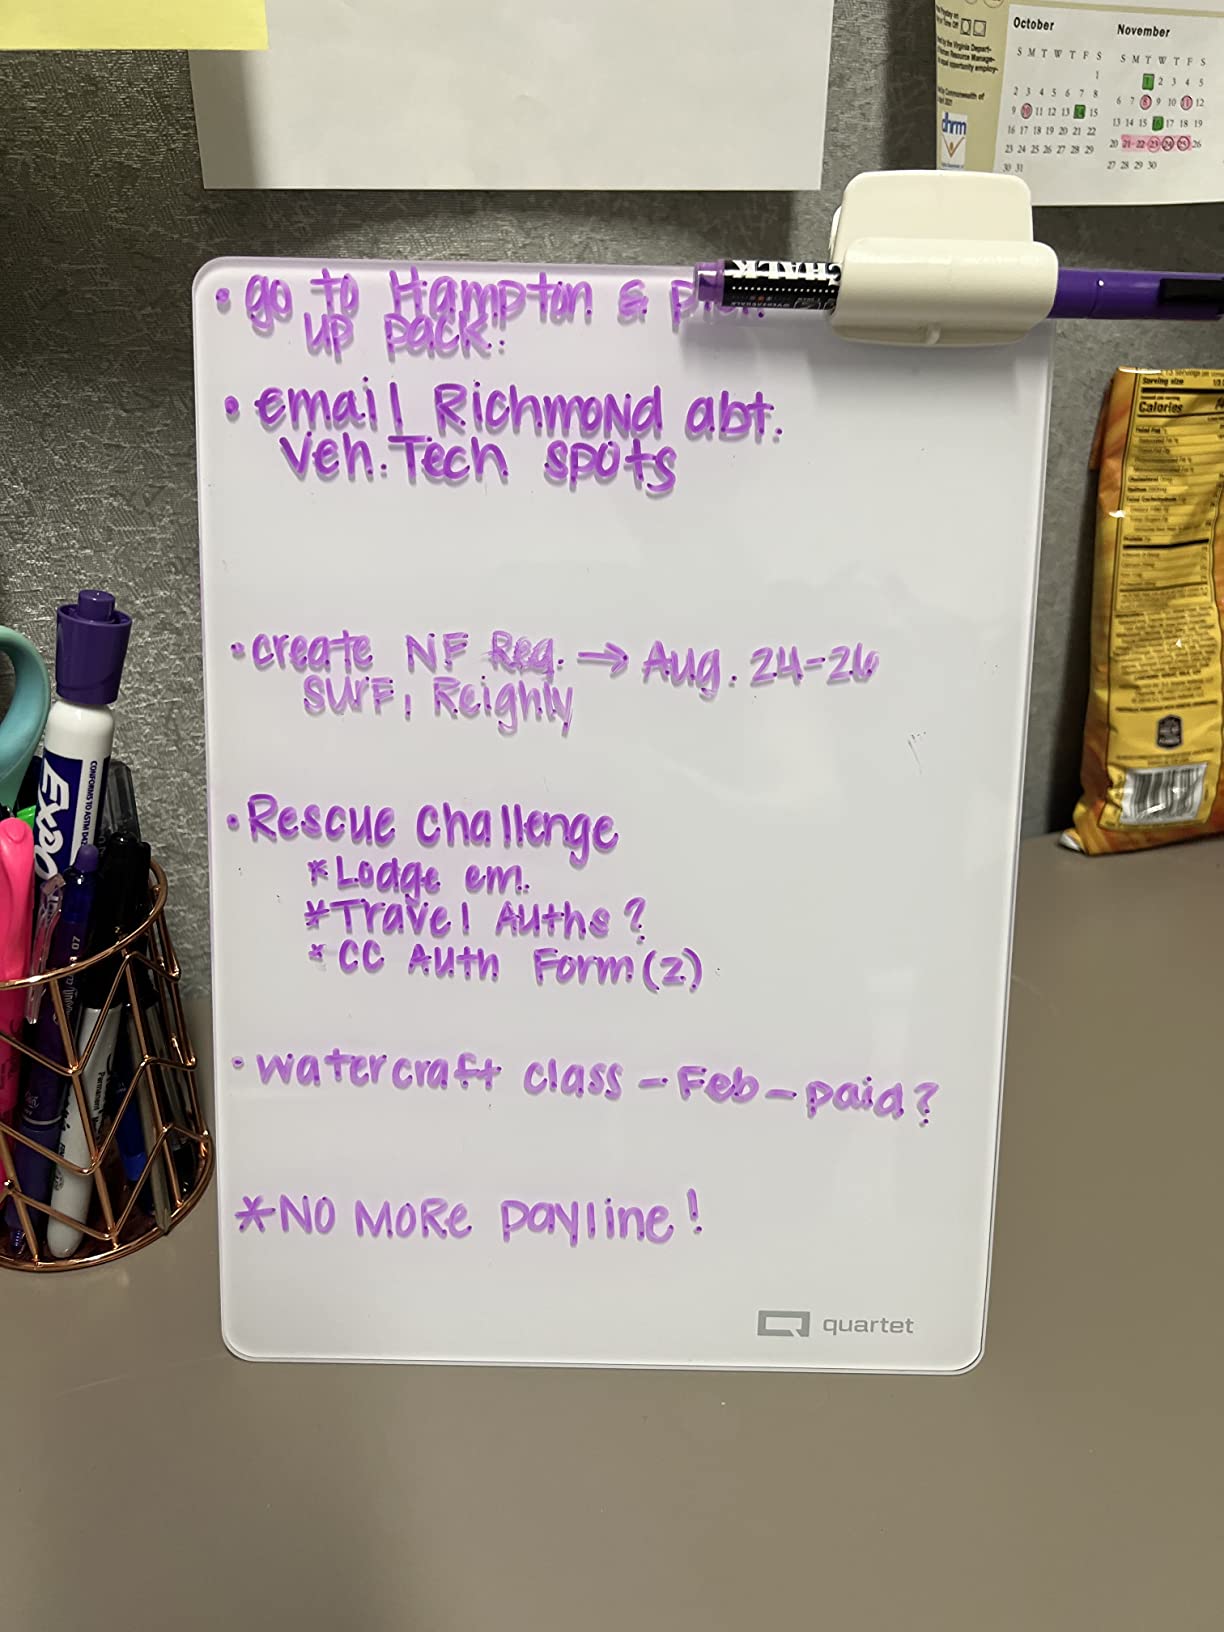 October
November
S M T W T F S
S M T W T F S
1
1 2 3 4 5
2 3 4 5 6 7 8
6 7 8 9 10 11 12
9 10 11 12 13 14 15
13 14 15 16 17 18 19
16 17 18 19 20 21 22
20 21 22 23 24 25 26
23 24 25 26 27 28 29
27 28 29 30
30 31
dhrm
CHALK
• go to Hampton &
up pack.
• email Richmond abt.
Veh. Tech spots
• create NF Req. → Aug. 24-26
SURF, Reighly
• Rescue challenge
* Lodge em.
* Travel Auths?
* CC Auth Form (2)
• watercraft class - Feb - paid?
* NO MORE payline!
quartet
EXPO
CONFORMS TO ASTM
07
Serving size
Calories